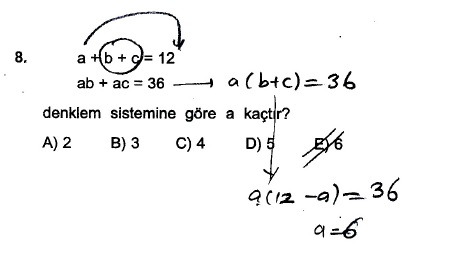 8. a + b + c = 12
ab + ac = 36 → a(b+c)=36
denklem sistemine göre a kaçtır?
A) 2 B) 3 C) 4 D) 5 E) 6
a(12-a)=36
a=6